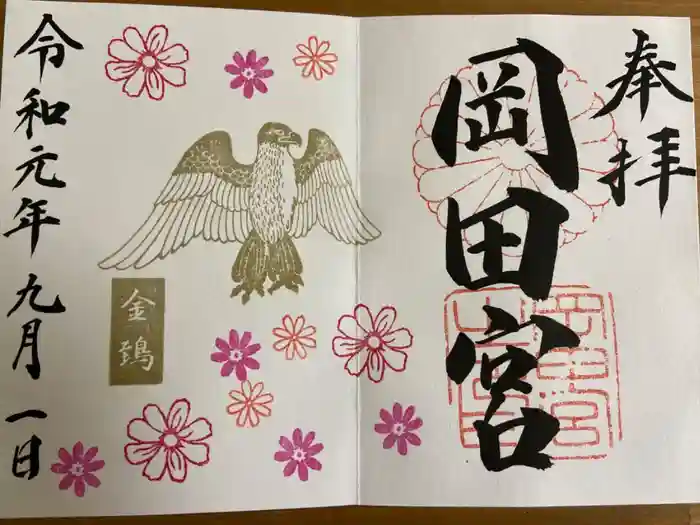 奉拝
岡田宮
金鵄
令和元年九月一日